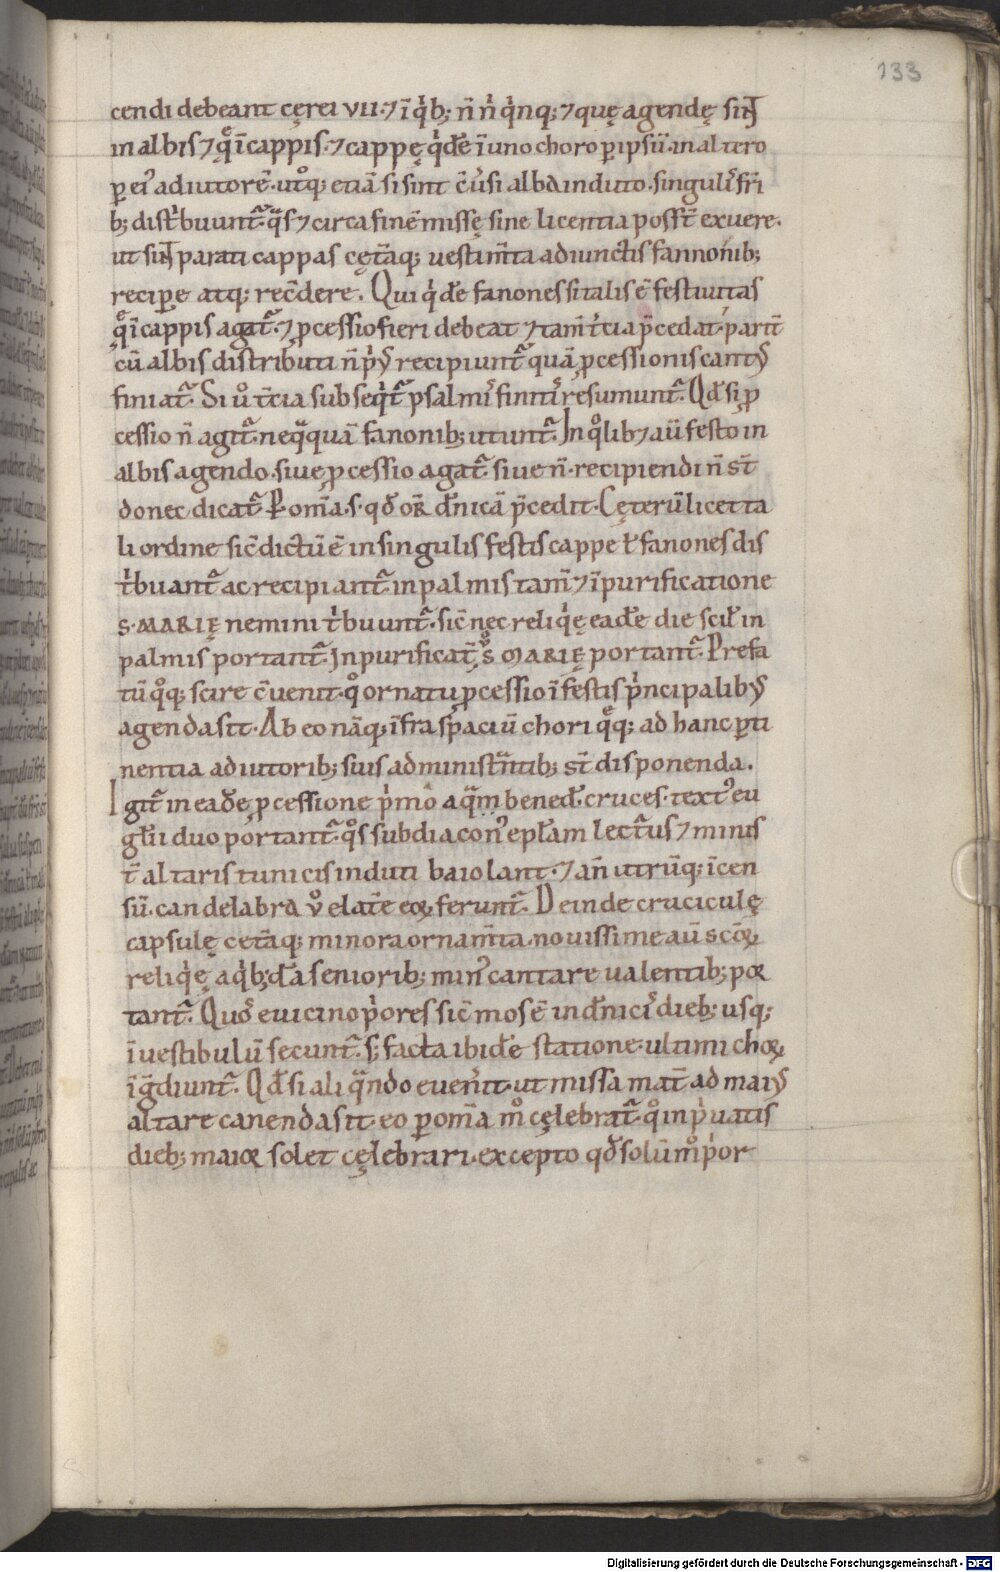 133
cendi debeant cęrei vii. ⁊ ī q̇b; n̄ n' q'nq; ⁊ quę agendę sint
in albis ⁊ q̨ ī cappis. ⁊ cappę q'dē ī uno choro ꝑ ipsū. in altero
ꝑ ei' adiutorē. utq; etiā si sint c̄uersi alba induto. singulis fri
b; distˈbuunt᷑. q̃s ⁊ circa finē missę sine licentia posst̄ exuere.
ut sint parati cappas cętāq; vestimt̄a adiunctis fannonib;
recipꝑe atq; recd̄ere. Qui q'dē fanones si talis ē festiuitas
q̨ ī cappis agat᷑. ⁊ ꝓcessio fieri debeat ⁊ tam̄ t'cia p̄cedat. parit̄
cū albis distributi n̄ p'us recipiunt᷑ quā ꝓcessionis cantꝰ
finiat᷑. Si ů t̄cia subseq't᷑ psalmis finitis resumunt᷑. Qd̄ si ꝓ
cessio n̄ agit᷑. neq̃quā fanonib; utunt᷑. In q̊lib; aū festo in
albis agendo. siue ꝓcessio agat᷑. siue n̄. recipiendi n̄ st̄
donec dicat᷑ P om̄ia. s. qđ or̄ dn̄icā p̄cedit. Cęterū licet ta
li ordine sic̄ dictū ē in singulis festis cappę ł fanones dis
t'buant᷑ ac recipiant᷑. in palmis tam̄ ⁊ ī purificatione
S. MARIĘ nemini t'buunt᷑. sic̄ nec reliq'ę eadē die scil' in
palmis portant᷑. In purificat̄ ů S MARIĘ portant᷑. Prefa
tū q̊q; scire c̄uenit. q̊ ornatu ꝓcessio ī festis p'ncipalibꝰ
agenda sit. Ab eo nāq; īfra spaciū chori q̨q; ad hanc ꝑti
nentia adiutorib; suis administ̃ntib; st̄ disponenda.
Igit᷑ in eadē ꝓcessione p'mo aq̃m bened̄. cruces. text' eu
gl̄ii duo portant᷑. q̊s subdiacon' epl̄am lecturus ⁊ minis
t̄ altaris tunicis induti baiolant. ⁊ an̄ utrūq; īcen
sū. candelabra ů elat̄e eoꝝ ferunt᷑. Deinde cruciculę
capsulę cetāq; minora ornam̄ta. nouissime aū scōꝝ
reliq'ę aq'b;dā seniorib; min' cantare ualentib; por
tant᷑. Quos e uicino p'ores sic̄ mos ē in dn̄icis dieb; usq;
ī vestibulū secunt᷑. s; facta ibidē statione. ultimi choꝝ
īg̃diunt᷑. Qd̄ si aliq̃ndo euen'it. ut missa mat̄ ad maiꝰ
altare canenda sit. eo ꝑ om̄ia m̊ cęlebrat᷑. q̊ in p'uatis
dieb; maior solet cęlebrari. excepto qđ solūm̊ p'or
Digitalisierung gefördert durch die Deutsche Forschungsgemeinschaft - DFG